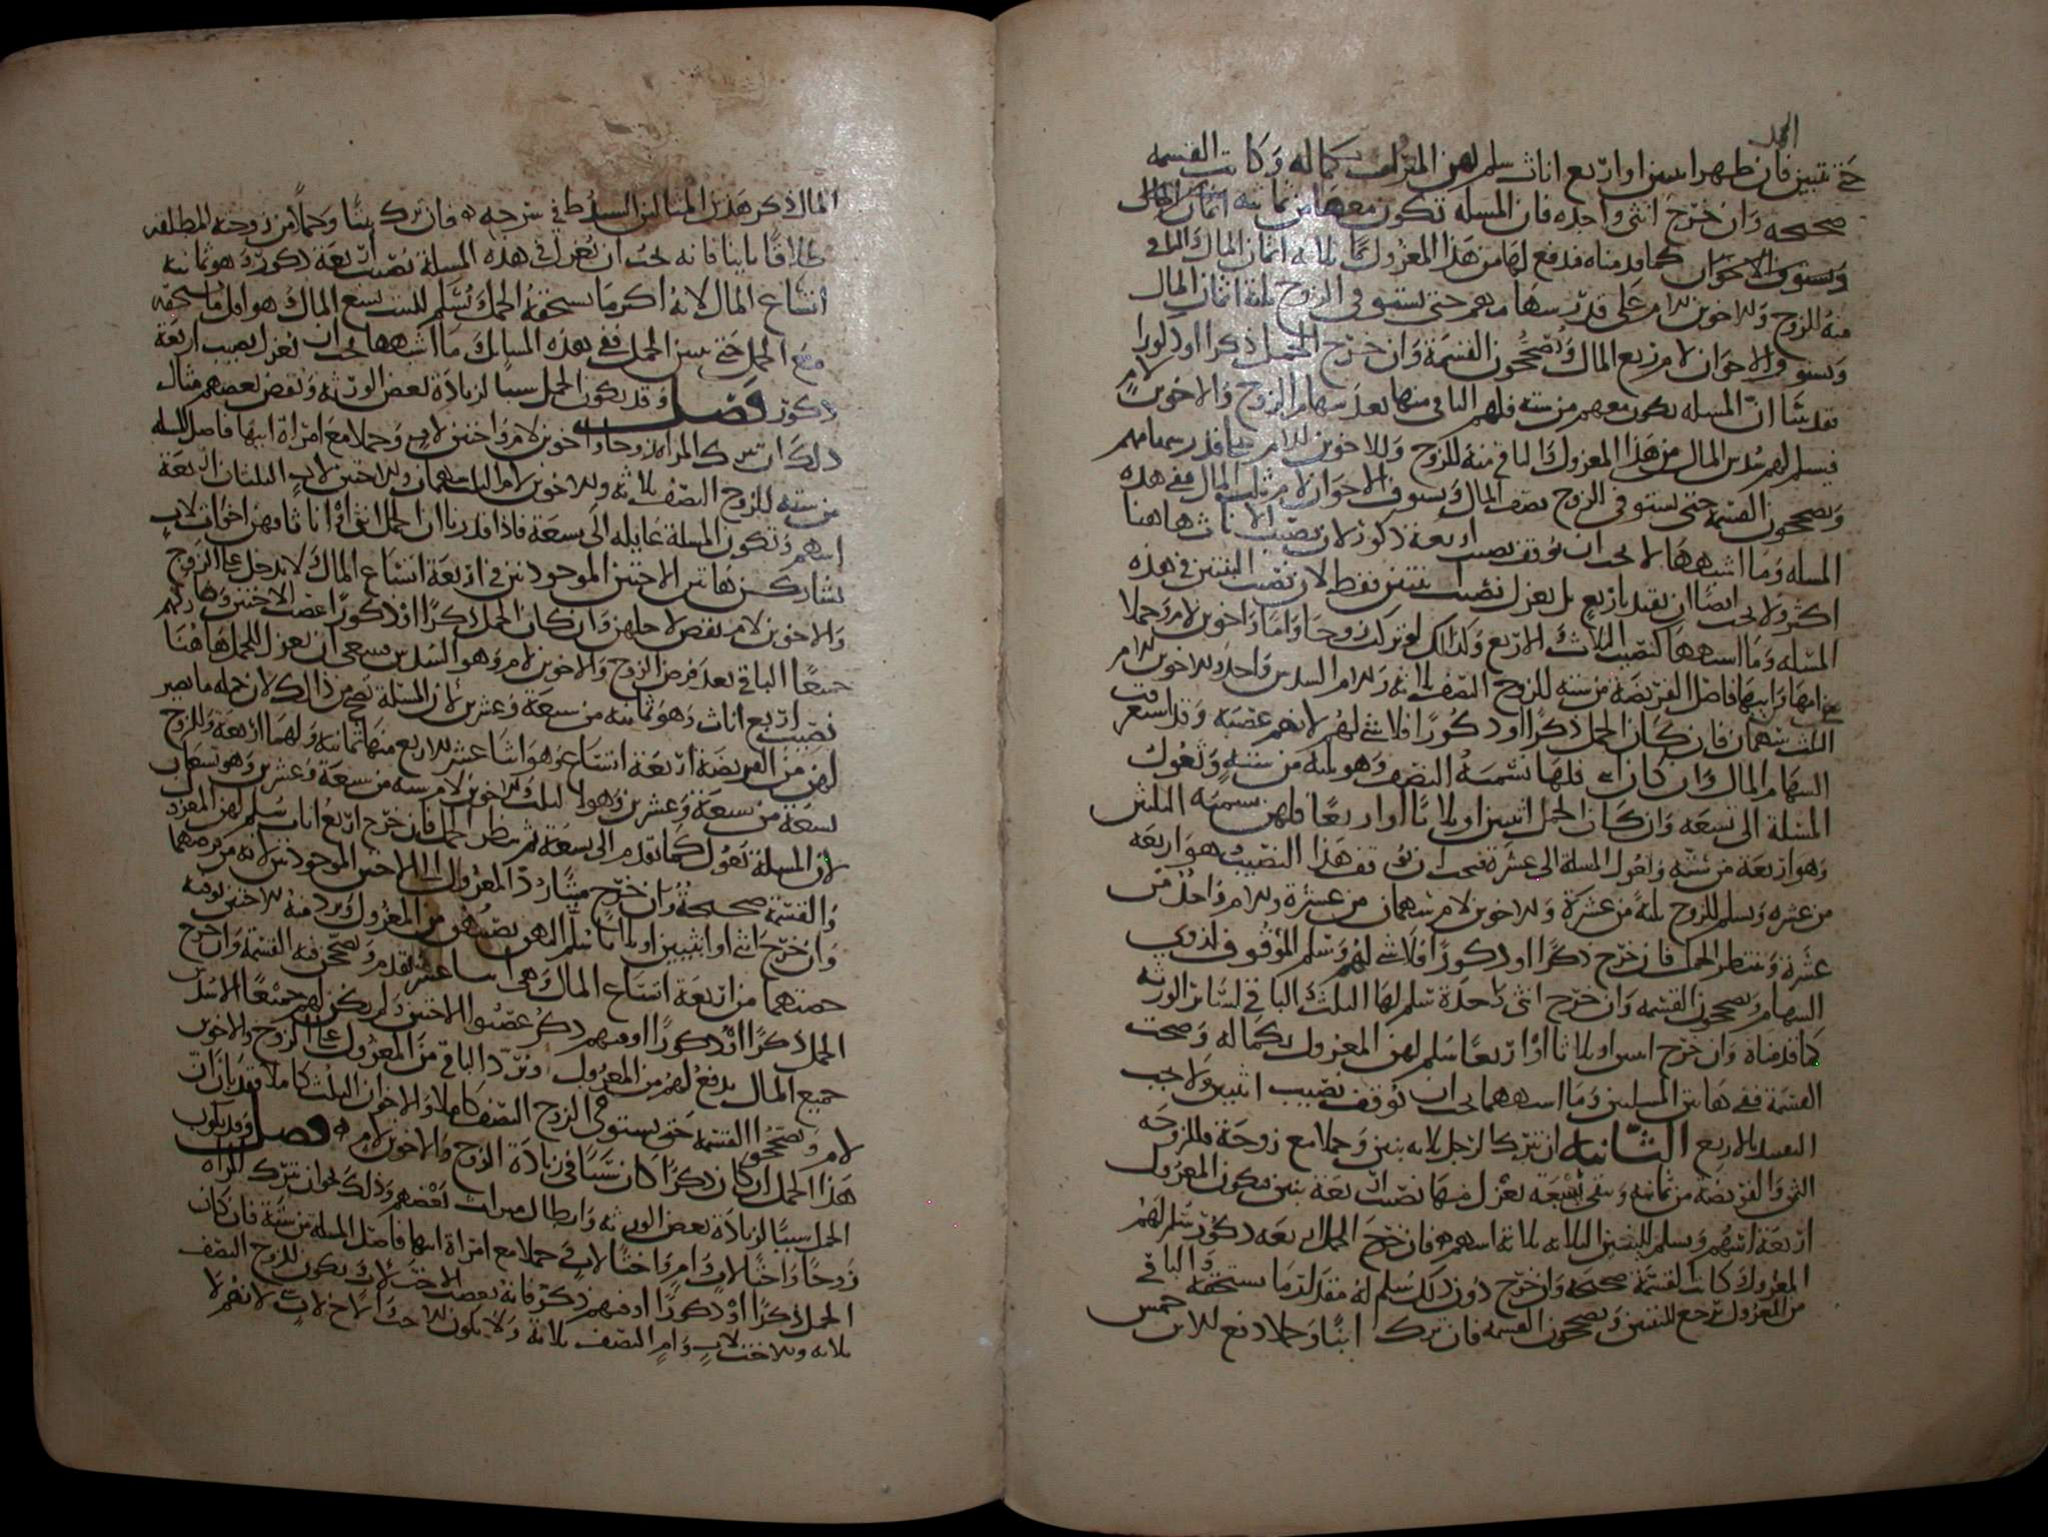 الحمل
حتى تتبين فان ظهر اثنتين او اربع اناث سلم لهن المتروك بكماله وكانت القسمه
صحيحه وان خرج انثى واحده فان المسله تكون معها من ثمانيه اثمان المال
ويستوفى الاخوان كما قدمناه فدفع لها من هذا المعزول كما ثلاثه اثمان المال الباقي
منه للزوج وللاخوين للام على قدر سهامهم حتى يستوفى الزوج ثلثة اثمان المال
ويستوفى الاخوان لام ربع المال ويصححون القسمة وان خرج الحمل ذكرا او ذكورا
فقلنا ان المسله تكون معهم من سته فلهم الباقي منها بعد سهام الزوج والاخوين لام
فيسلم لهم سدس المال من هذا المعزول الباقي منه للزوج وللاخوين للام على قدر سهامهم
ويصححون القسمة حتى يستوفى الزوج نصف المال ويستوفى الاخوان لام ثلث المال ففي هذه
المسله وما اشبهها لا يجب ان يوقف نصيب اربعة ذكور لان نصيب الاناث هاهنا
اكثر ولا يجب ايضا ان نقيد باربع بل يعزل نصيب بنتين فقط لان نصيب البنتين في هذه
المسله وما اشبهها كنصيب الثلاث والاربع وكذلك لو ترك زوجا واما واخوين لام وحملا
من امها وابيها فاصل الفريضة من سته للزوج النصف ثلاثه وللام السدس واحد وللاخوين للام
الثلث سهمان فان كان الحمل ذكرا او ذكورا فلا شي لهم لانهم عصبه وقد استغرقت
السهام المال وان كان انثى فلها تسميه النصف وهو ثلثه من سته وتعول
المسله الى تسعه وان كان الحمل اثنتين او ثلاثا او اربعا فلهن تسميه الثلثين
وهو اربعة من سته وتعول المسله الى عشره فيجب ان يوقف هذا النصيب هو اربعه
من عشره ويسلم للزوج ثلثة من عشرة وللاخوين لام سهمان من عشرة وللام واحد من
عشرة وينتظر الحمل فان خرج ذكرا او ذكورا فلا شي لهم وسلم الموقوف لذوي
السهام ويصححون القسمه وان خرج انثى واحدة سلم لها الثلث والباقي لسائر الورثه
كما قدمناه وان خرج اثنتين او ثلاثا او اربعا سلم لهن المعزول بكماله وصحت
القسمة ففي هاتين المسلتين وما اشبههما يجب ان توقف نصيب اثنتين ولا يجب
التقييد بالاربع الثانيه ان يترك الرجل ثلاثه بنين وحملا مع زوجة فللزوجه
الثمن والفريضة من ثمانيه ويبقى سبعة يعزل منها نصيب اربعة بنين فيكون المعزول
اربعة اسهم ويسلم للبنين الثلاثه ثلاثة اسهم فان خرج الحمل اربعه ذكور سلم لهم
المعزول كانت القسمة صحيحه وان خرج دون ذلك سلم له مقدار ما يستحقه والباقي
من المعزول يرجع للبنين ويصححون القسمه فان ترك ابنا وحملا دفع للابن خمس
المال ذكر هذين المثالين السيوطي في شرحه فان ترك بنتا وحملا من زوجته المطلقه
طلاقا باينا فانه يجب ان يعزل في هذه المسلة نصيب اربعة ذكور وهو ثمانيه
اتساع المال لانه اكثر ما يستحقه الحمل ويسلم للبنت تسع المال هو اقل ما تستحقه
مع الحمل حتى يتبين الحمل ففي هذه المسائل وما اشبهها يجب ان يعزل نصيب اربعة
ذكور فصل وقد يكون الحمل سببا لزيادة لبعض الورثه ونقص لبعضهم مثال
ذلك ان تترك المراه زوجا واخوين لام واختين لاب وحملا مع امراة ابيها فاصل المسله
من سته للزوج النصف ثلاثه وللاخوين لام الثلث سهمان وللاختين لاب الثلثان اربعة
اسهم وتكون المسلة عايله الى تسعة فاذا قدرنا ان الحمل انثى او اناثا فهن اخوات لاب
يشاركن هاتين الاختين الموجودتين في اربعة اتساع المال لا يدخل على الزوج
والاخوين لام نقص لاجلهن وان كان الحمل ذكرا او ذكورا عصب الاختين وكان لهم
جميعا الباقي بعد فرض الزوج والاخوين لام وهو السدس فينبغي ان يعزل للحمل هاهنا
نصيب اربع اناث وهو ثمانيه من سبعة وعشرين لان المسلة تصح من ذلك لان جمله ما يصير
لهن من الفريضة اربعة اتساع وهو اثنا عشر للاربع منها ثمانيه ولهما اربعة وللزوج
تسعة من سبعة وعشرين وهو الثلث وللاخوين لام سته من سبعة وعشرين وهو تسعان
لان المسلة تعول كما تقدم الى تسعة ثم ينظر الحمل فان خرج اربع اناث سلم لهن المعزول
والقسمة صحيحة وان خرج ميتا رد المعزول الى الاختين الموجودتين لانه من فرضهما
وان خرج انثى او انثيين او ثلاثا سلم لهن نصيبهن من المعزول ويرد منه للاختين توفيه
حصتهما من اربعة اتساع المال هي اثنا عشر تقدم ويصححن فيه القسمة وان خرج
الحمل ذكرا او ذكورا او فيهم ذكر عصبوا الاختين ولم يكن لهم جميعا الا سدس
جميع المال يدفع لهم من المعزول ويرد الباقي من المعزول على الزوج والاخوين
لام ويصححوا القسمة حتى يستوفى الزوج النصف كاملا والاخوان الثلث كاملا فقد بان ان
هذا الحمل ان كان ذكرا كان سببا في زيادة الزوج والاخوين لام فصل وقد يكون
الحمل سببا لزيادة بعض الورثه وابطال ميراث بعضهم وذلك نحو ان تترك المراه
زوجا واختا لاب وام واختا لاب وحملا مع امراة ابيها فاصل المسلة من ستة فان كان
الحمل ذكرا او ذكورا او فيهم ذكر فانه يعصب الاخت لاب ويكون للزوج النصف
ثلاثه وللاخت لاب وام النصف ثلاثة ولا يكون للاخت والاخ لاب لانهم لا